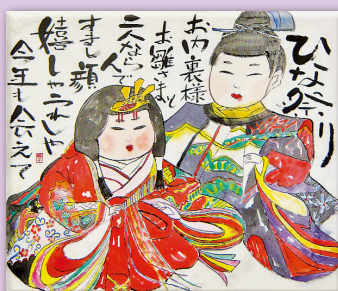 ひな祭り
お内裏様
お雛さまと
二人ならんで
すまし顔
嬉しゃうれしや
今年も会えて